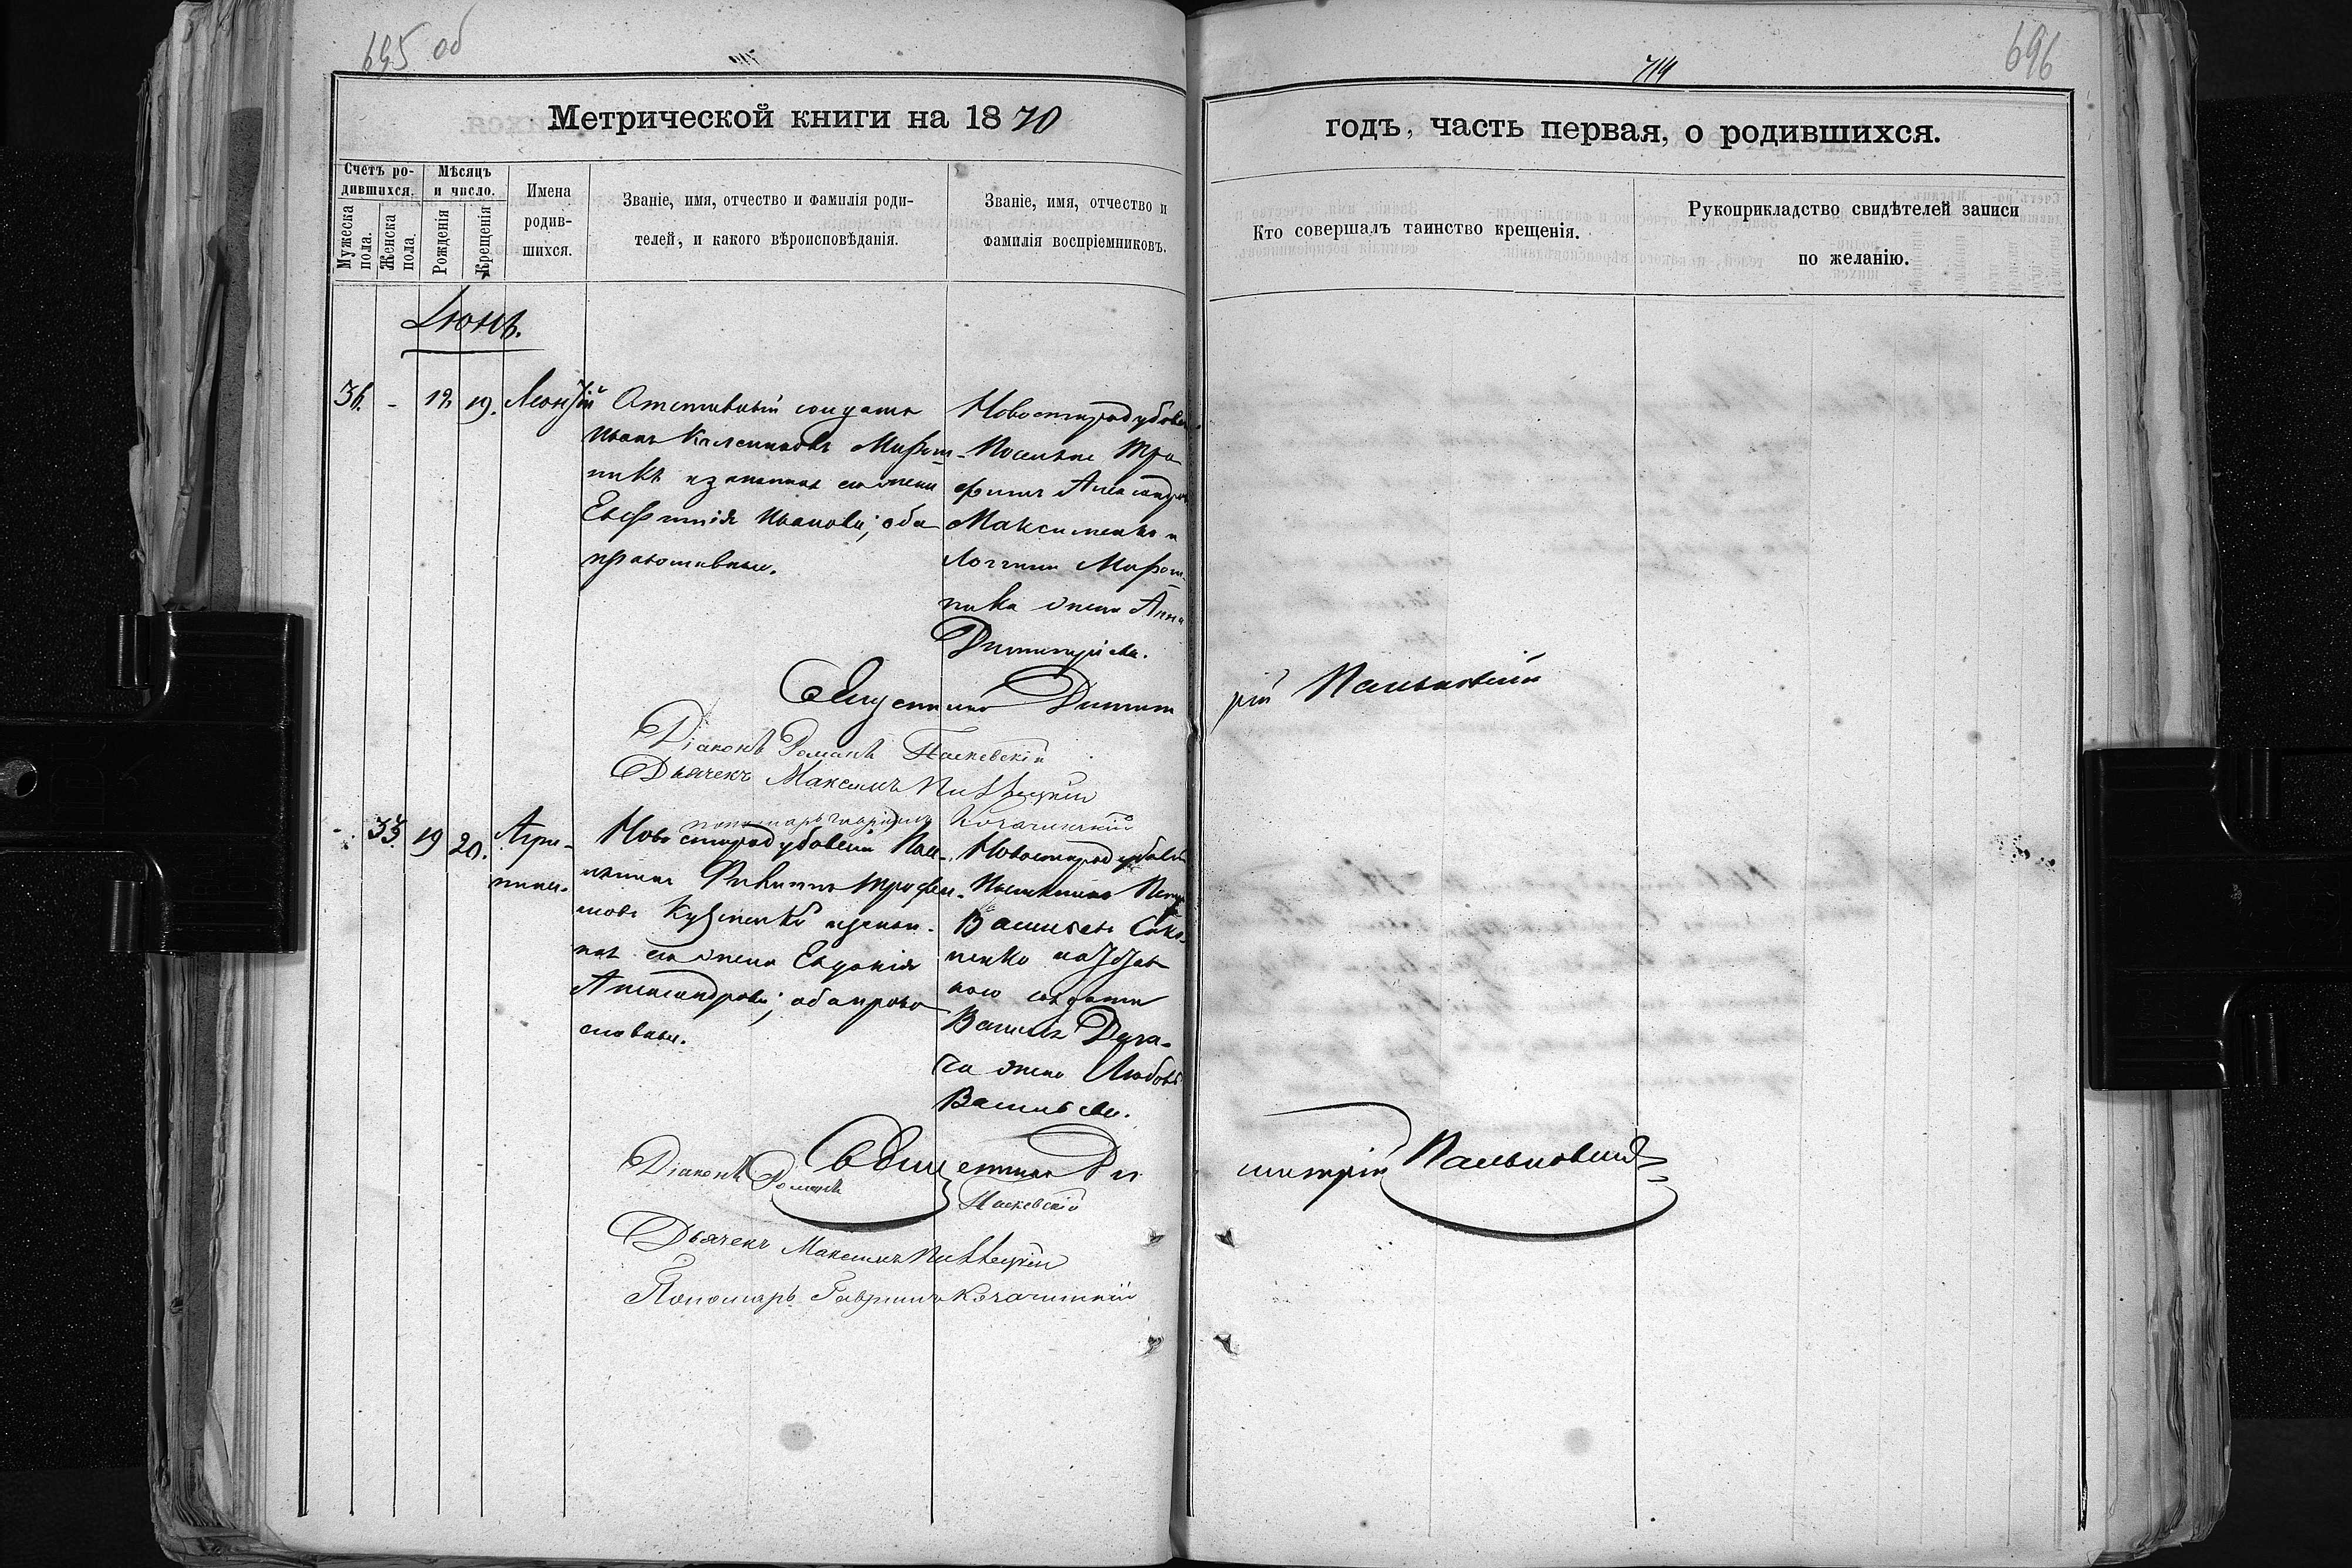 695 об
714
696
Метрической книги на 1870
годъ, часть первая, о родившихся.
Счетъ ро-
дившихся.
Мужеска
пола.
Женска
пола.
Мѣсяцъ
и число.
Рожденія
Крещенія
Имена
родив-
шихся.
Званіе, имя, отчество и фамилія роди-
телей, и какого вѣроисповѣданія.
Званіе, имя, отчество и
фамилія воспріемниковъ.
Кто совершалъ таинство крещенія.
Рукоприкладство свидѣтелей записи
по желанію.
Іюнь.
36. - 12 19. Леонтій
Отставный солдатъ
Иванъ Калениковъ Мирош-
никъ и законная его жена
Евфимія Иванова; оба
православные.
Новостародубовск
Поселянинъ Тро
фимъ Александров
Максименко и
Логгина Мирош-
ника жена Анна
Димитріева.
Священникъ Димит
рій Пальковскій
Діаконъ Романъ Паскевскій
Дьячекъ Максимъ
Пономарь Гавріилъ
33. 19 20. Агри-
пина.
Новостародубовскій Посе-
лянинъ Филиппъ Трофи-
мовъ Кузменко и закон-
ная его жена Евдокія
Александрова; оба право
славные.
Новостародубовск
Поселянинъ Петръ
Васильевъ
солдата
Василія
жена Любовь
Васильева.
Священникъ Ди
митрій Пальковскій
Діаконъ Романъ
Паскевскій
Дьячекъ Максимъ
Пономарь Гавріилъ